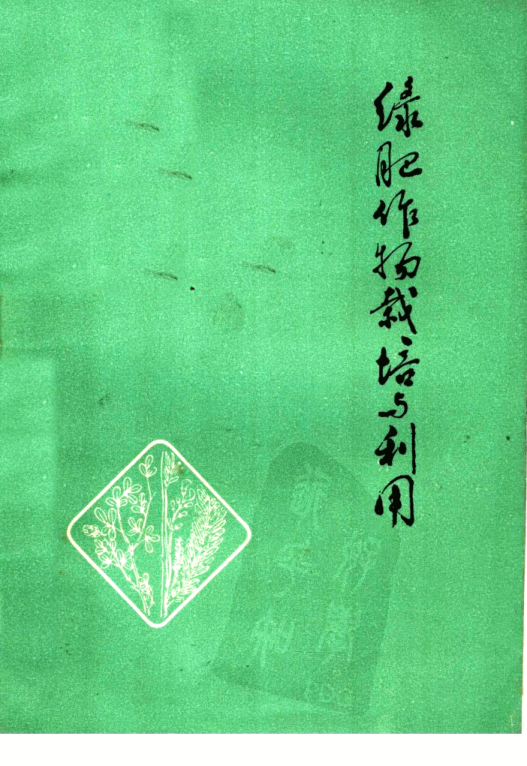 绿肥作物栽培与利用
CDG